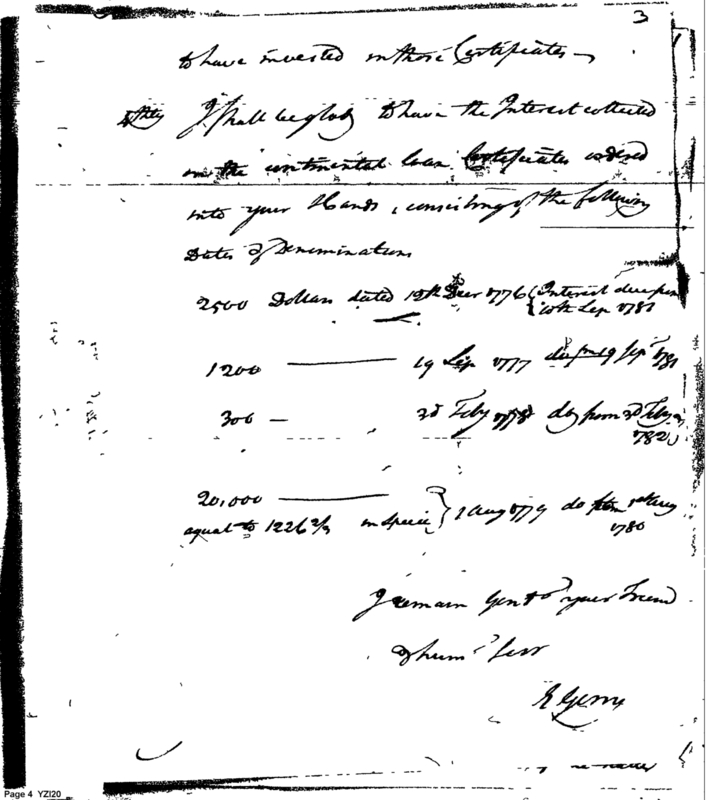 3
to have invested in those Certificates
4thly I shall be glad to have the Interest collected
on the continental loan Certificates ordered
into your Hands, consisting of the following
Dates & Denominations
2500 Dollars dated 12th Decr 1776 { Interest due from
10th Sep 1781
1200 19 Sep 1777 do from 19 Sepr 1781
300 2d Feby 1778 do from 2d Feby
1782
20,000
equal to 1226 2/3 in specie } 1 Aug 1779 do from 1st Aug
1780
I remain Gentn your Friend
& humb Serv
E Gerry
Page 4 YZI20